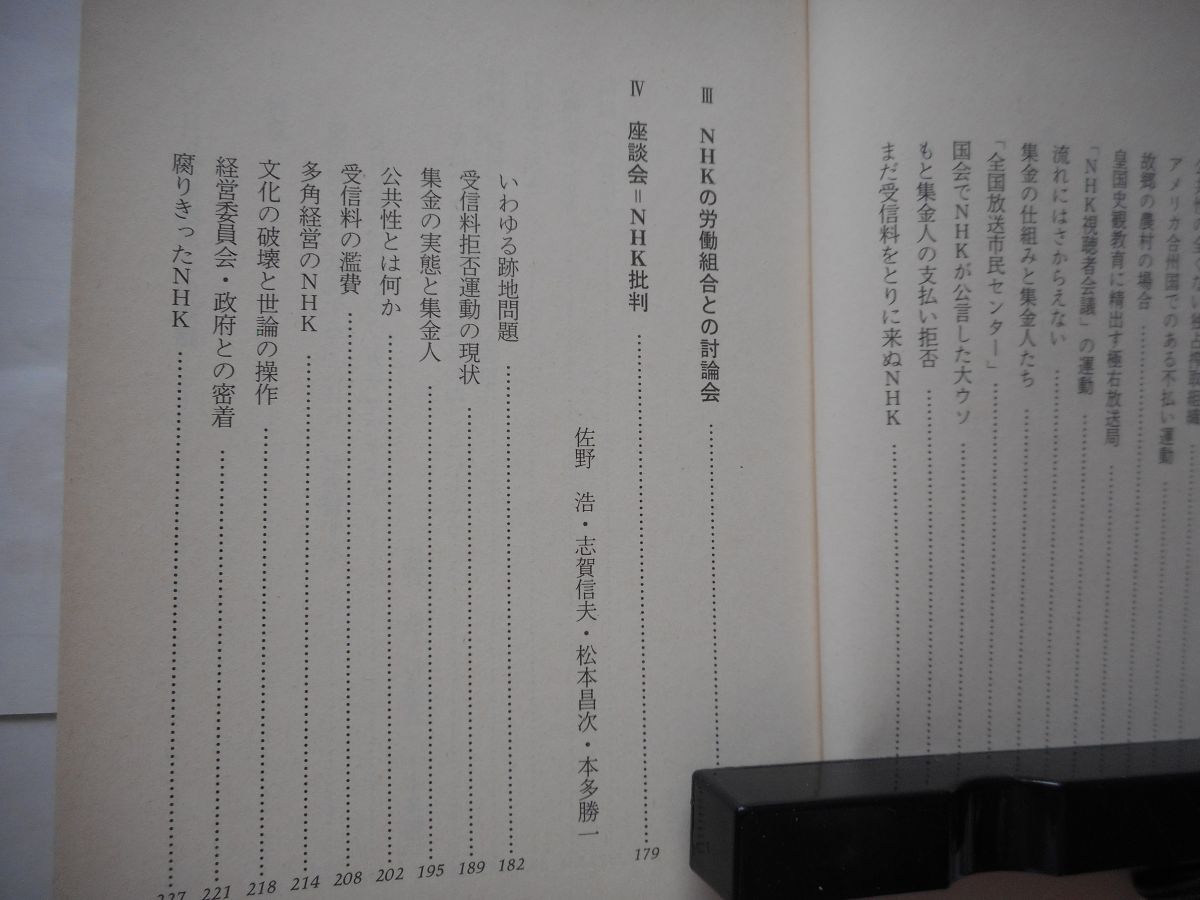 アメリカ合州国でのある不払い運動
故郷の農村の場合
皇国史観教育に精出す極右放送局
「NHK視聴者会議」の運動
流れにはさからえない
集金の仕組みと集金人たち
「全国放送市民センター」
国会でNHKが公言した大ウソ
もと集金人の支払い拒否
まだ受信料をとりに来ぬNHK
Ⅲ NHKの労働組合との討論会
Ⅳ 座談会=NHK批判 179
佐野 浩・志賀信夫・松本昌次・本多勝一
いわゆる跡地問題 182
受信料拒否運動の現状 189
集金の実態と集金人 195
公共性とは何か 202
受信料の濫費 208
多角経営のNHK 214
文化の破壊と世論の操作 218
経営委員会・政府との密着 221
腐りきったNHK 227